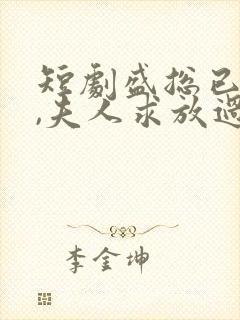 短劇盛总已
,夫人求放過
李金坤